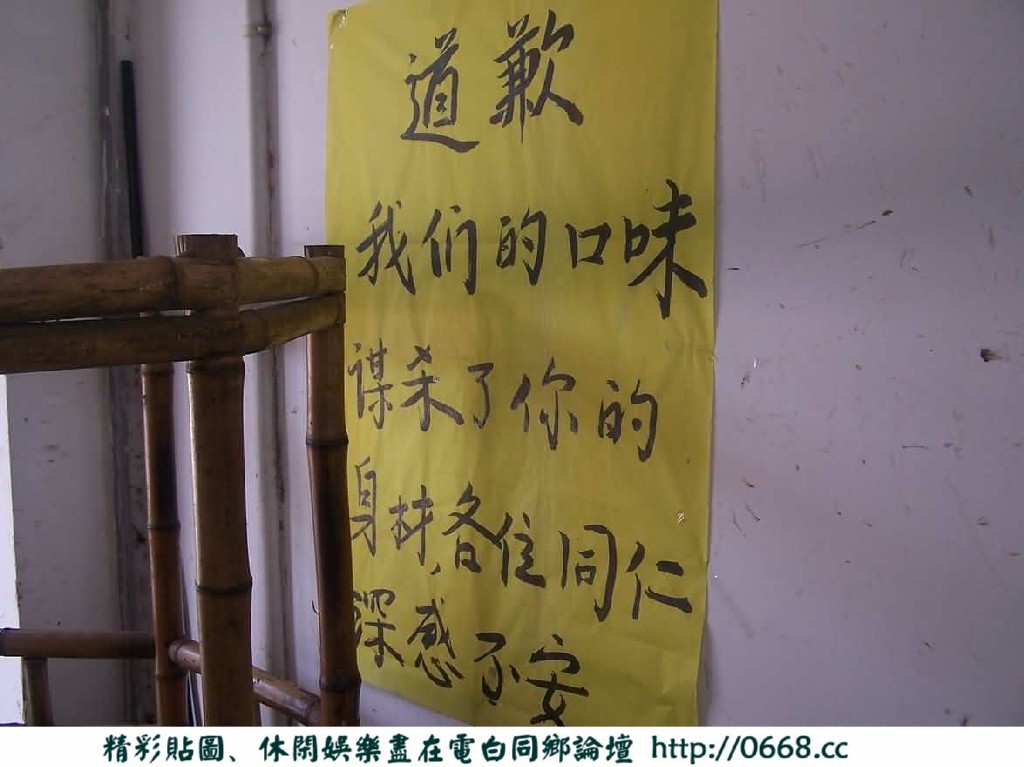 道歉
我们的口味
谋杀了你的
身材,各位同仁
深感不安
精彩貼圖、休閑娛樂盡在電白同鄉論壇 http://0668.cc